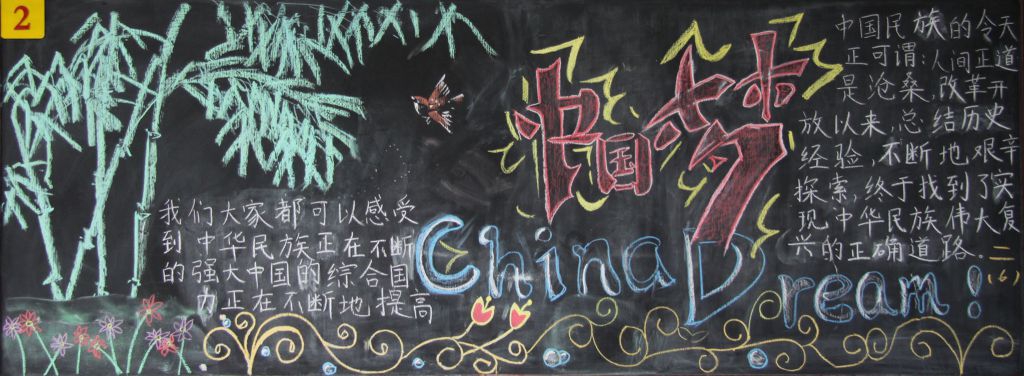 2
我们大家都可以感受
到中华民族正在不断
的强大中国的综合国
力正在不断地提高
中国梦
China Dream!
中国民族的今天
正可谓:人间正道
是沧桑.改革开
放以来,总结历史
经验,不断地艰辛
探索,终于找到了实
现中华民族伟大复
兴的正确道路.
二(6)